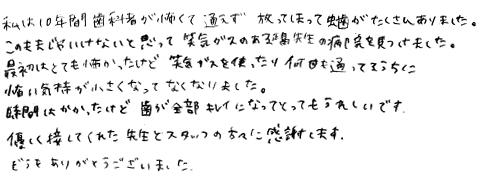 私は10年間歯科者が怖くて通えず 放ってしまって虫歯がたくさんありました。
このままじゃいけないと思って 笑気ガスのある先生の病院を見つけました。
最初はとても怖かったけど 笑気ガスを使ったり何回も通ってるうちに
怖い気持が小さくなってなくなりました。
時間はかかったけど 歯が全部キレイになってとってもうれしいです。
優しく接してくれた先生とスタッフの方々に感謝します。
どうもありがとうございました。